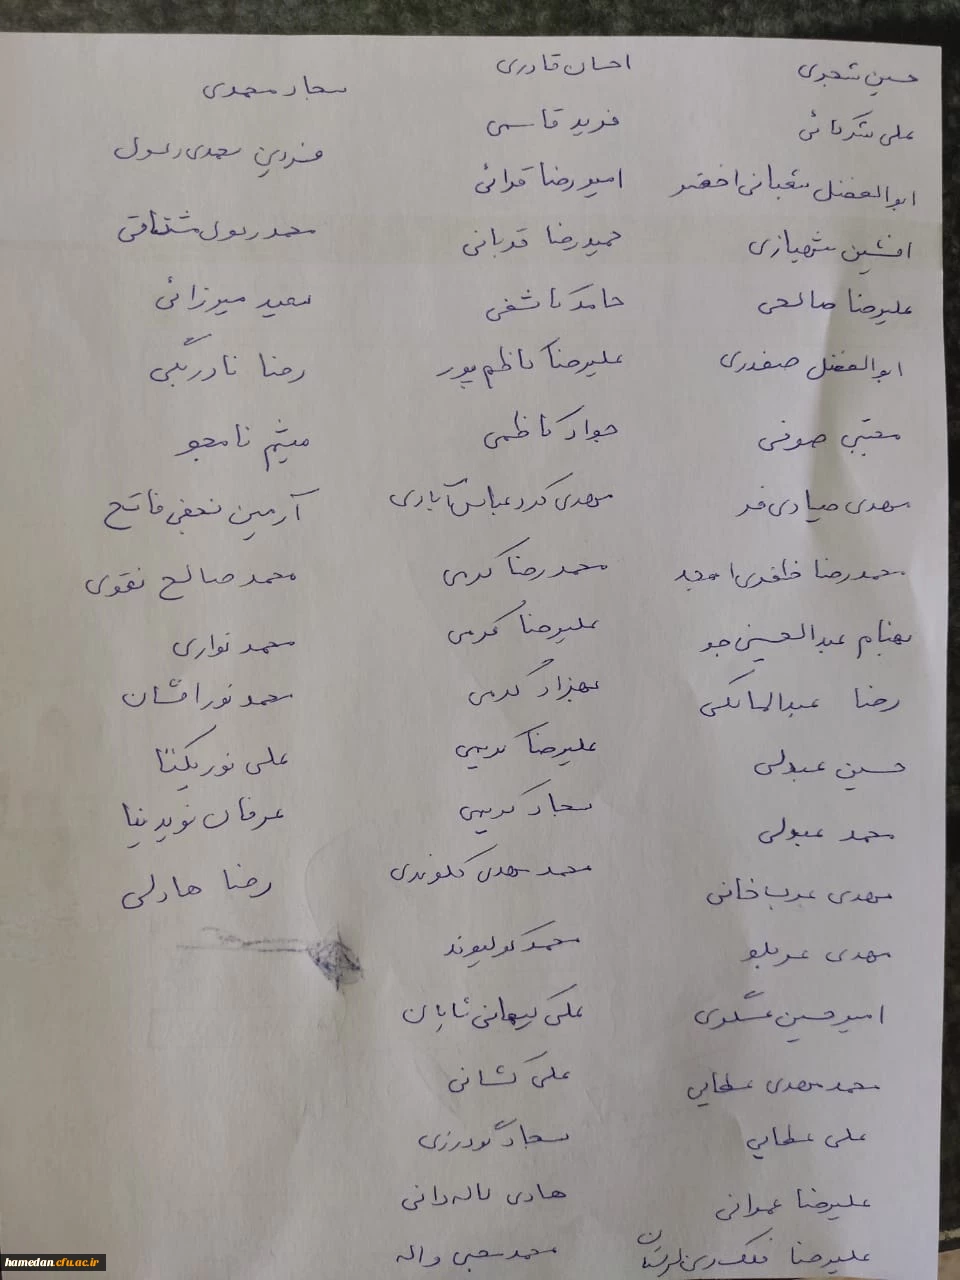 حسین شجری
علی شکرائی
ابوالفضل شعبانی اخضر
افشین شهبازی
علیرضا صالحی
ابوالفضل صفدری
مجتبی صوفی
مهدی صیادی فر
محمدرضا ظفری امجد
بهنام عبدالحسینی جو
رضا عبدالمالکی
حسین عبدلی
محمد عبدلی
مهدی عرب خانی
مهدی عربلو
امیرحسین عسگری
محمد مهدی عطایی
علی عطایی
علیرضا عمرانی
علیرضا فلک دین
احسان قادری
فرید قاسمی
امیررضا قرائی
حمیدرضا قربانی
حامد کاشفی
علیرضا کاظم پور
جواد کاظمی
مهدی کرد عباس آبادی
محمدرضا کرمی
علیرضا کرمی
بهزاد کرمی
علیرضا کریمی
سجاد کریمی
محمد مهدی کلوندی
محمد کولیوند
علی کیهانی تابان
علی گشانی
سجاد گودرزی
هادی لاله دانی
محمد محبی واله
سجاد محمدی
فردین محمدی رسول
محمد رسول مشتاقی
سعید میرزائی
رضا نادربگی
میثم نامجو
آرمین نجفی فاتح
محمد صالح نقوی
محمد نواری
محمد نورافشان
علی نوریکتا
عرفان نویدنیا
رضا هادلی
hamedan.cfu.ac.ir